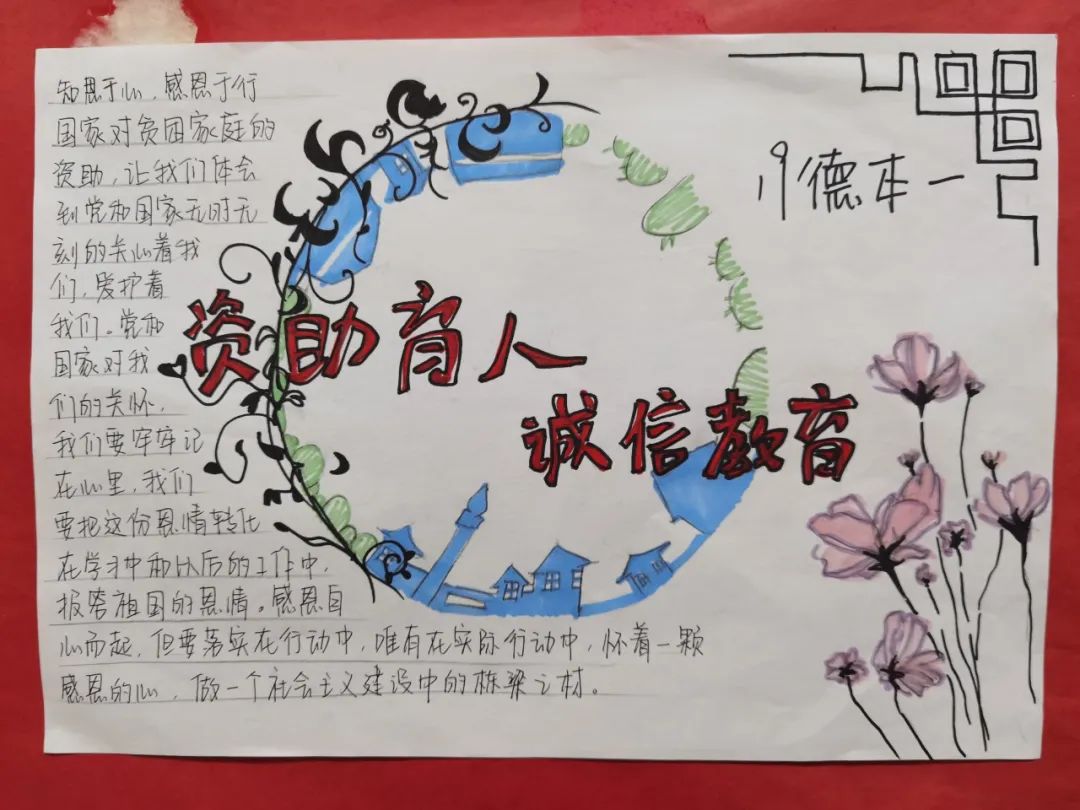 知恩于心，感恩于行
国家对贫困家庭的
资助，让我们体会
到党和国家无时无
刻的关心着我
们，爱护着
我们。党和
国家对我
们的关怀，
我们要牢牢记
在心里，我们
要把这份恩情转化
在学习中和以后的工作中，
报答祖国的恩情。感恩自
心而起，但要落实在行动中，唯有在实际行动中，怀着一颗
感恩的心，做一个社会主义建设中的栋梁之材。
资助育人
诚信教育
德本一